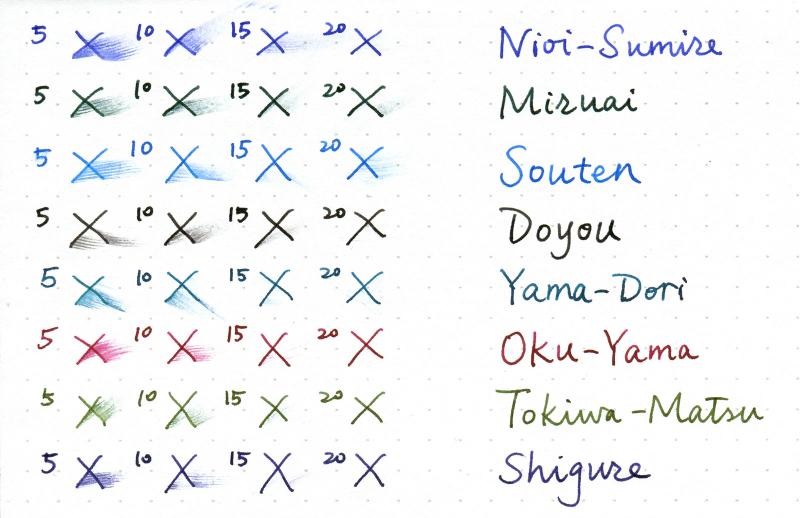 5 X 10 X 15 X 20 X Nioi-Sumire
5 X 10 X 15 X 20 X Mizuai
5 X 10 X 15 X 20 X Souten
5 X 10 X 15 X 20 X Doyou
5 X 10 X 15 X 20 X Yama-Dori
5 X 10 X 15 X 20 X Oku-Yama
5 X 10 X 15 X 20 X Tokiwa-Matsu
5 X 10 X 15 X 20 X Shigure